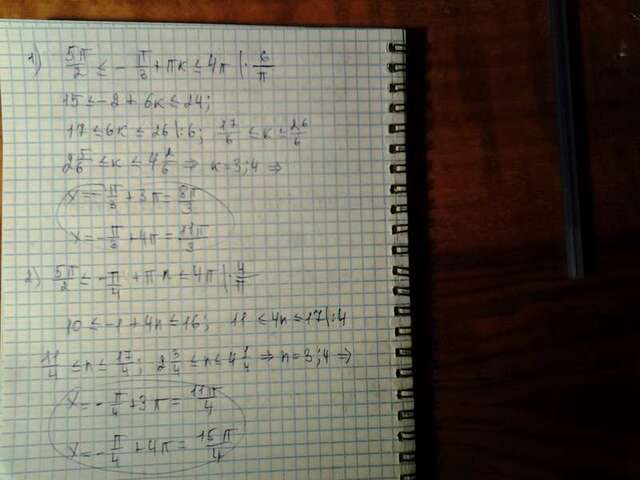 1) 5π/2 ≤ -π/3 + πk ≤ 4π |· 6/π
15 ≤ -2 + 6k ≤ 24;
17 ≤ 6k ≤ 26 |:6; 17/6 ≤ k ≤ 26/6
2 5/6 ≤ k ≤ 4 2/6 ⇒ k=3;4 ⇒
x = -π/3 + 3π = 8π/3
x = -π/3 + 4π = 11π/3
2) 5π/2 ≤ -π/4 + πn ≤ 4π |· 4/π
10 ≤ -1 + 4n ≤ 16; 11 ≤ 4n ≤ 17 |:4
11/4 ≤ n ≤ 17/4; 2 3/4 ≤ n ≤ 4 1/4 ⇒ n=3;4 ⇒
x = -π/4 + 3π = 11π/4
x = -π/4 + 4π = 15π/4